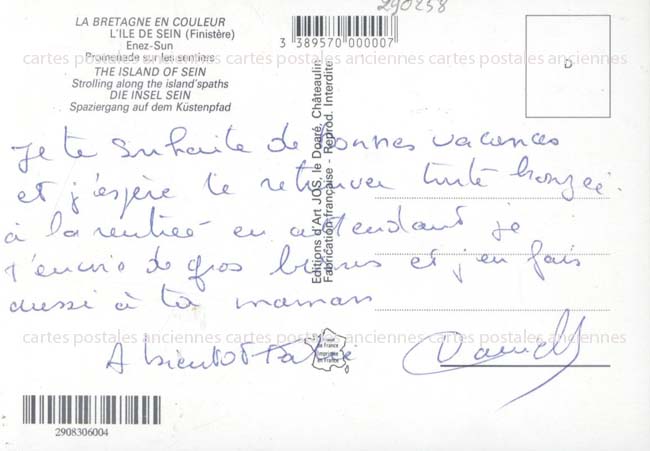 290258
LA BRETAGNE EN COULEUR
L'ILE DE SEIN (Finistère)
Enez-Sun
Promenade sur les sentiers
THE ISLAND OF SEIN
Strolling along the island'spaths
DIE INSEL SEIN
Spaziergang auf dem Küstenpfad
3 389570 000007
D
cartes postales anciennes cartes postales anciennes cartes postales anciennes
Editions d'Art JOS, le Doaré, Châteaulin
Fabrication française - Reprod. Interdite
Je te souhaite de bonnes vacances
et j'espère te retrouver toute bronzée
à la rentrée en attendant je
t'envoie de gros bisous et j'en fais
aussi à ta maman
cartes postales anciennes cartes postales anciennes cartes postales anciennes
A bientot
de France
Imprimé
en France
2908306004